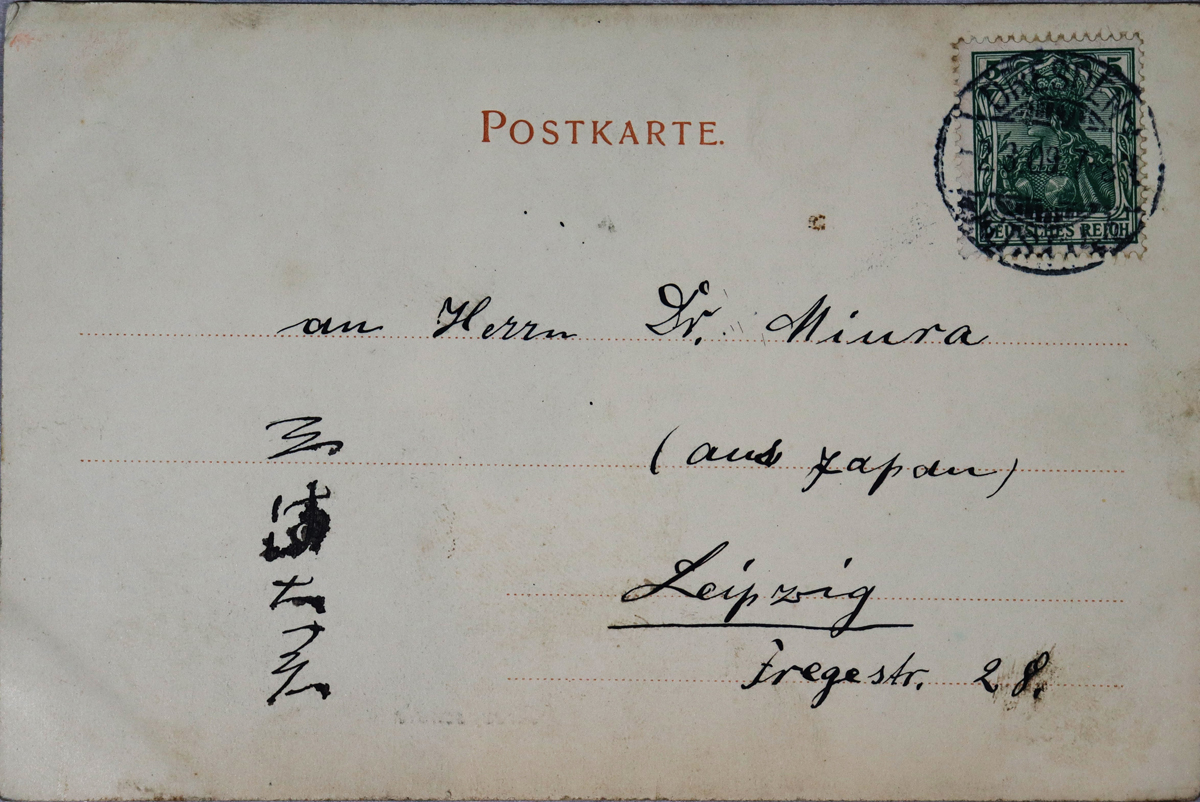 POSTKARTE.
5 5
DEUTSCHES REICH
an Herrn Dr. Miura
(aus Japan)
Leipzig
Fregestr. 28.
三浦